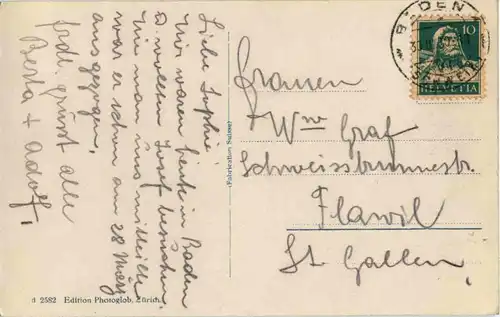 Liebe Sophie!
Wir waren heute in Baden
& wollten Josf besuchen.
Wie man uns mitteilte
war er schon am 28 März
ausgezogen,
frdl. grüsst alle
Berta + Adolf,
3 2582 Edition Photoglob, Zürich.
(Fabrication Suisse)
BADEN
10
HELVETIA
Frauen
Wwe Graf
Schweissbrunnenstr.
Flawil
St. Gallen.